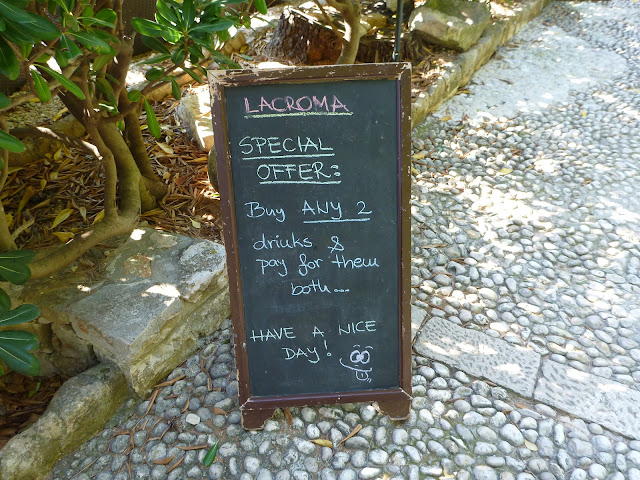 LACROMA
SPECIAL
OFFER:
Buy ANY 2
drinks &
pay for them
both...
HAVE A NICE
DAY!